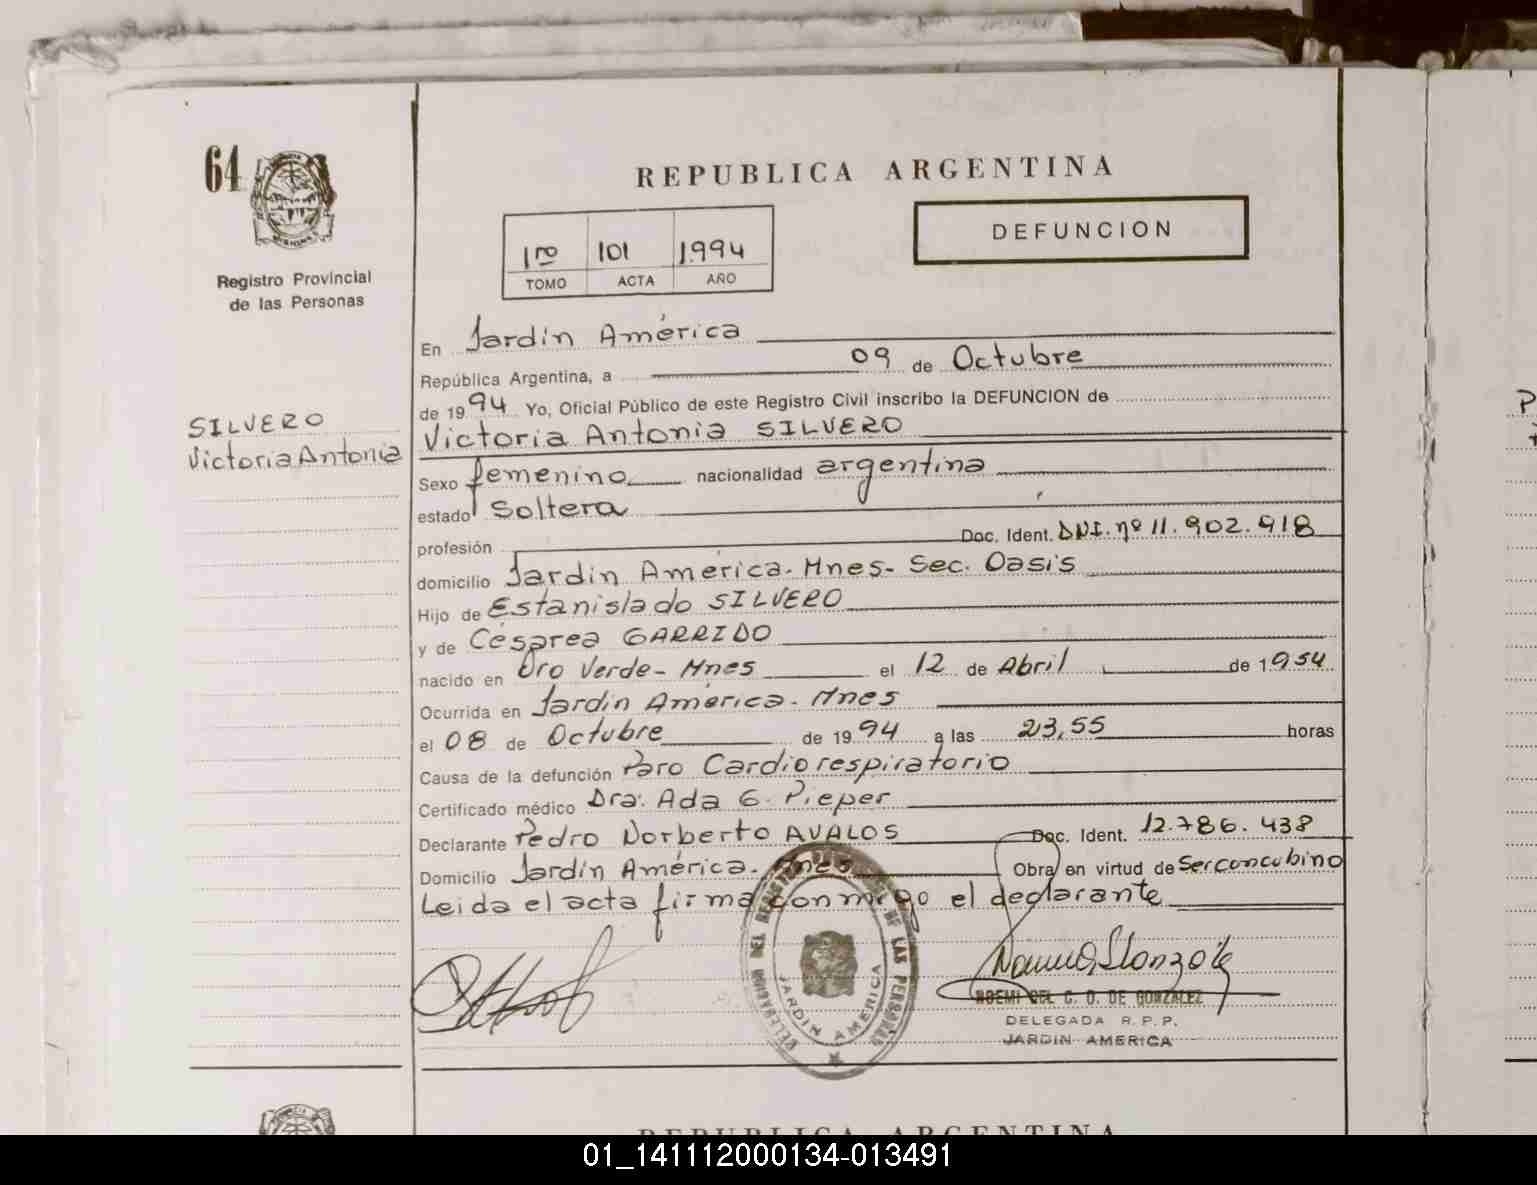 64
REPUBLICA ARGENTINA
DEFUNCION
1ro 101 1.994
TOMO ACTA AÑO
Registro Provincial
de las Personas
SILVERO
Victoria Antonia
En Jardín América
República Argentina, a 09 de Octubre
de 1994 Yo, Oficial Público de este Registro Civil inscribo la DEFUNCION de
Victoria Antonia SILVERO
Sexo femenino nacionalidad argentina
estado Soltera
profesión Doc. Ident. DNI. nº 11.902.918
domicilio Jardín América- Mnes- Sec. Oasis
Hijo de Estanislado SILVERO
y de Césarea GARRIDO
nacido en Oro Verde- Mnes el 12 de Abril de 1954
Ocurrida en Jardín América- Mnes
el 08 de Octubre de 1994 a las 23,55 horas
Causa de la defunción Paro Cardiorespiratorio
Certificado médico Dra: Ada G. Pieper
Declarante Pedro Norberto AVALOS Doc. Ident. 12.786.438
Domicilio Jardín América- Mnes Obra en virtud de Ser concubino
Leida el acta firma conmigo el declarante
DELEGACION DEL REGISTRO PROVINCIAL DE LAS PERSONAS
JARDIN AMERICA
NOEMI DEL C. O. DE GONZALEZ
DELEGADA R.P.P.
JARDIN AMERICA
REPUBLICA ARGENTINA
01_141112000134-013491